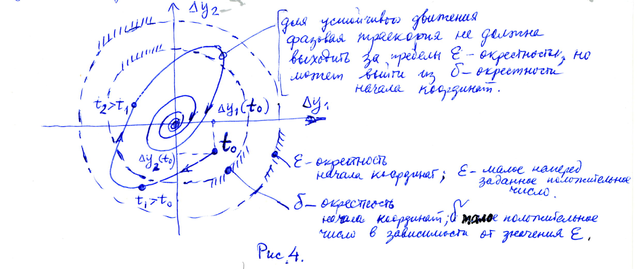 Δy₂
для устойчивого движения
фазовая траектория не должна
выходить за пределы ε-окрестности, но
может выйти из δ-окрестности
начала координат.
t₂>t₁
Δy₁(t₀)
Δy₁
t₀
Δy₂(t₀)
ε-окрестность
начала координат; ε-малое наперед
заданное положительное
число.
t₁>t₀
δ-окрестность
начала координат; δ малое положительное
число в зависимости от значения ε.
Рис. 4.